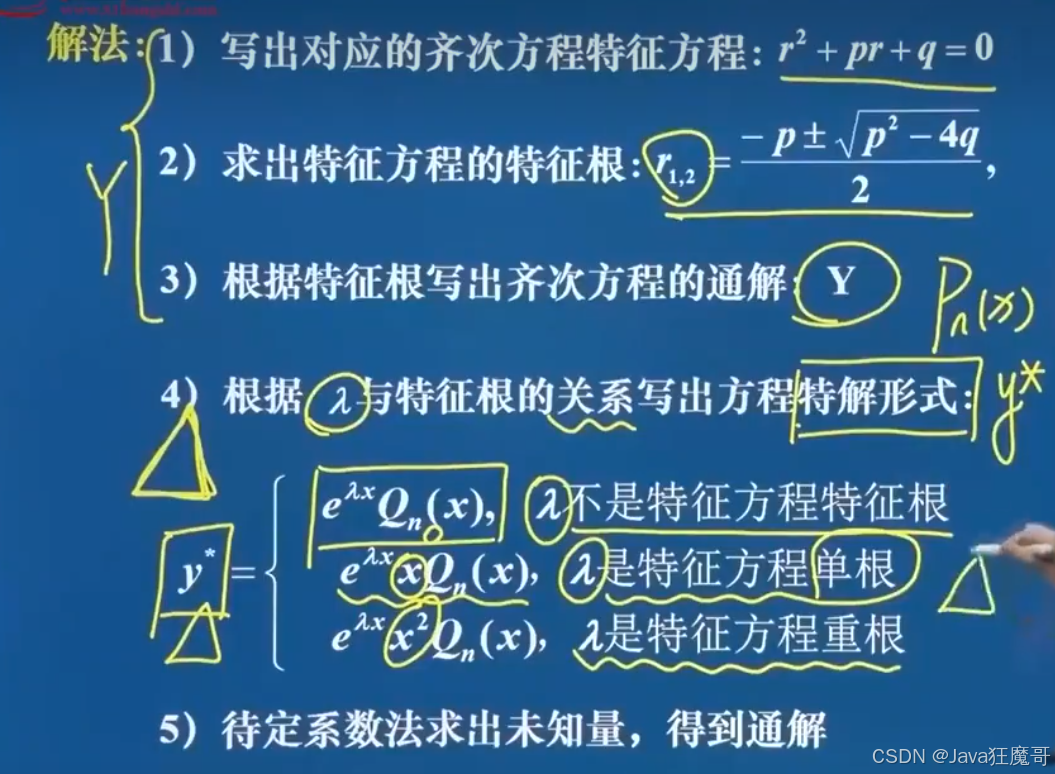 解法:
1) 写出对应的齐次方程特征方程: r² + pr + q = 0
2) 求出特征方程的特征根: r₁,₂ = (-p ± √(p² - 4q)) / 2,
Y
3) 根据特征根写出齐次方程的通解: Y
Pₙ(x)
4) 根据 λ 与特征根的关系写出方程特解形式: y*
e^{λx} Qₙ(x), λ不是特征方程特征根
y* = { e^{λx} x Qₙ(x), λ是特征方程单根
e^{λx} x² Qₙ(x), λ是特征方程重根
5) 待定系数法求出未知量，得到通解
CSDN @Java狂魔哥